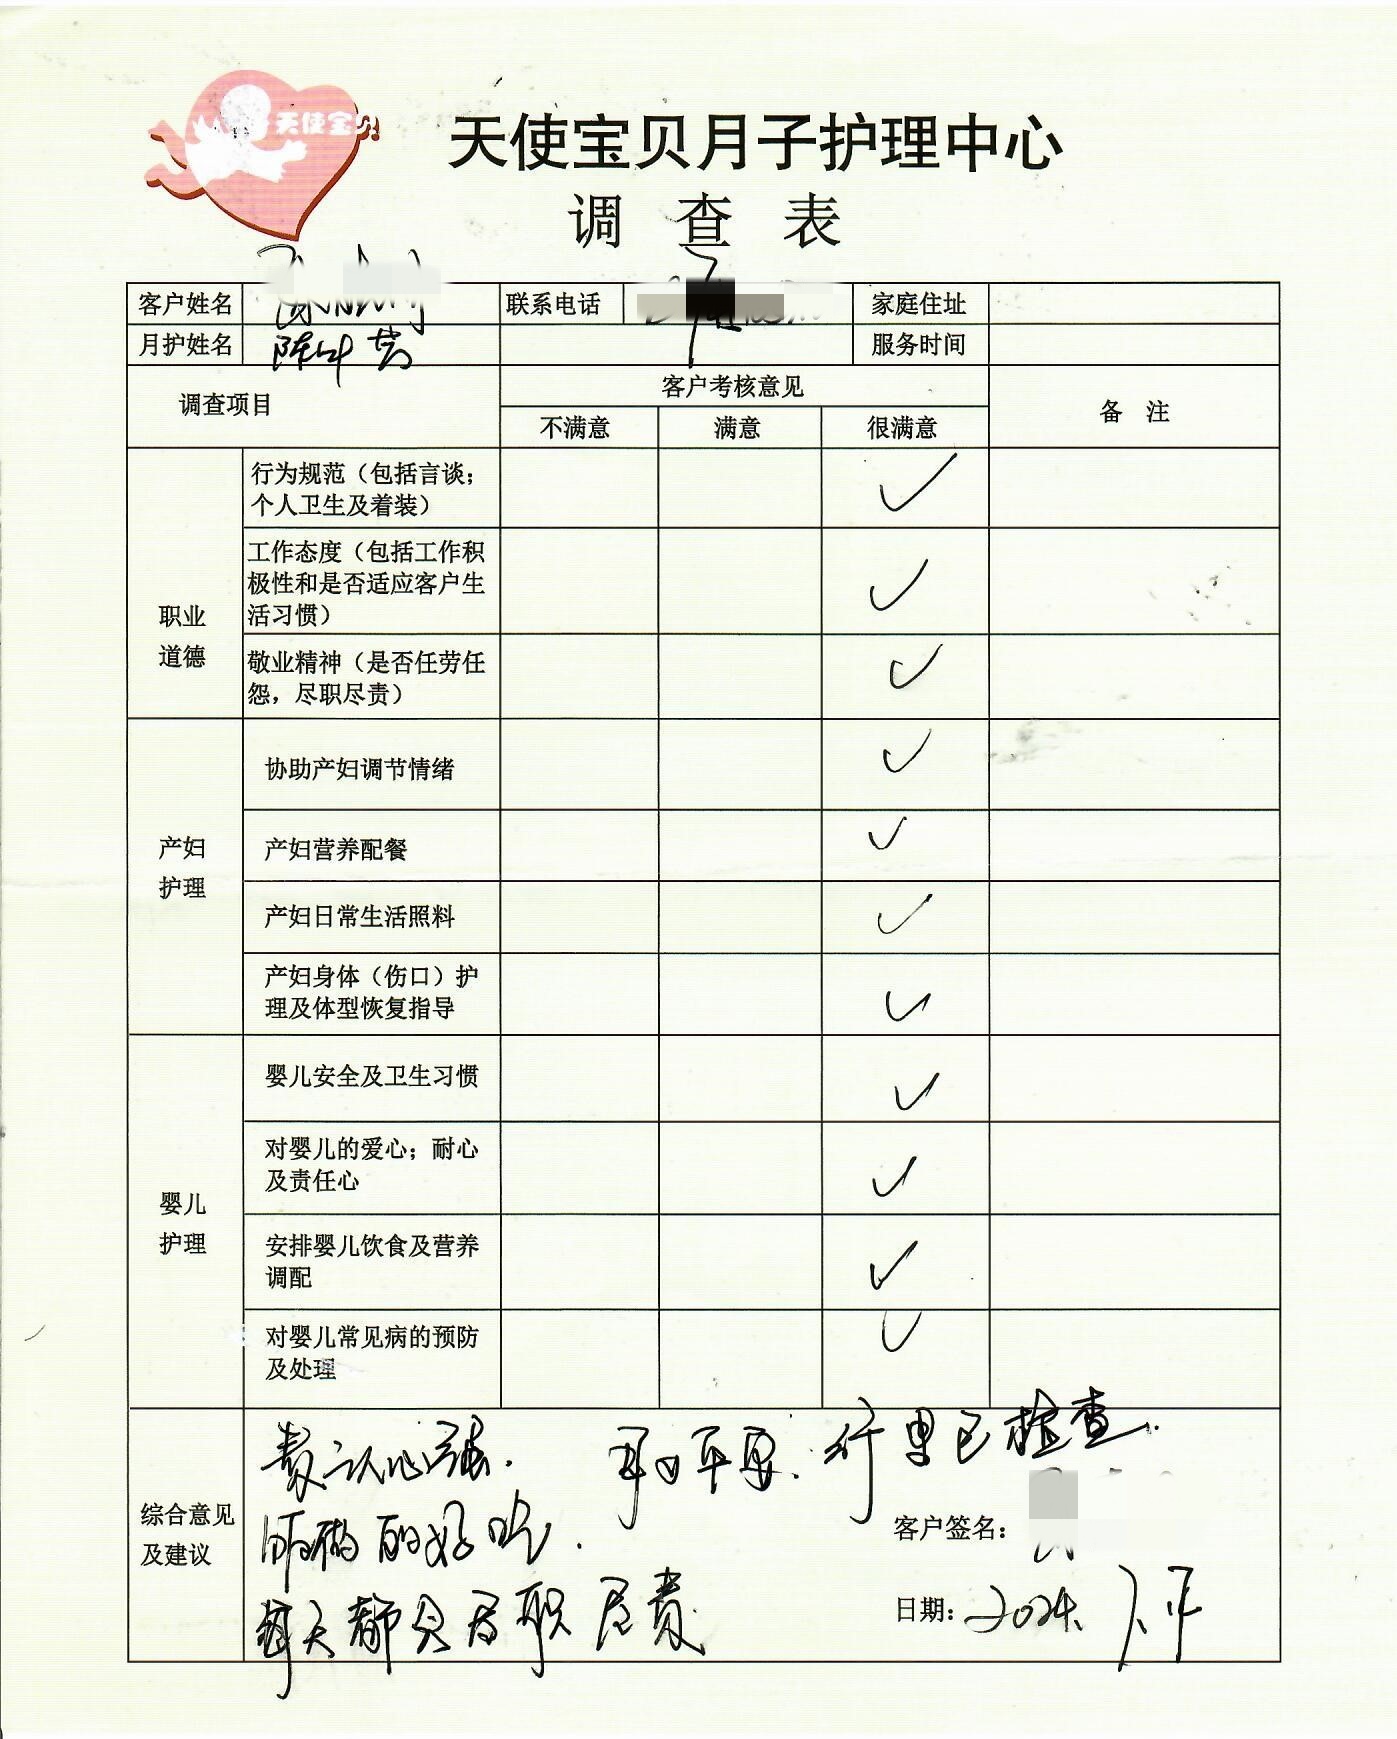 天使宝贝
天使宝贝月子护理中心
调查表
客户姓名 联系电话 家庭住址
月护姓名 陈 服务时间
调查项目 客户考核意见 备注
不满意 满意 很满意
职业道德
行为规范（包括言谈；
个人卫生及着装） ✓
工作态度（包括工作积
极性和是否适应客户生
活习惯） ✓
敬业精神（是否任劳任
怨，尽职尽责） ✓
产妇护理
协助产妇调节情绪 ✓
产妇营养配餐 ✓
产妇日常生活照料 ✓
产妇身体（伤口）护
理及体型恢复指导 ✓
婴儿护理
婴儿安全及卫生习惯 ✓
对婴儿的爱心；耐心
及责任心 ✓
安排婴儿饮食及营养
调配 ✓
对婴儿常见病的预防
及处理 ✓
综合意见及建议
行里已检查.
的好吃.
每天都 职尽责
客户签名：
日期：2024.